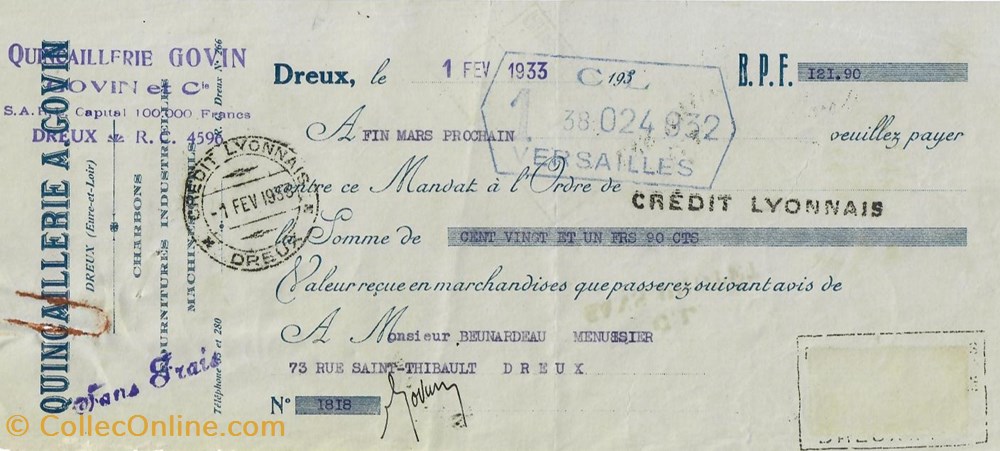 QUINCAILLERIE GOVIN
GOVIN et Cie
Capital 100.000 Francs
DREUX R. C. 4596
QUINCAILLERIE A. GOVIN
DREUX (Eure-et-Loir)
CHARBONS
FOURNITURES INDUSTRIELLES
Téléphone 35 et 280
Dreux N° 266
Sans Frais
Dreux, le 1 FEV 1933 193
B.P.F. 121.90
C L
1
38·024932
VERSAILLES
A FIN MARS PROCHAIN veuillez payer
contre ce Mandat à l'Ordre de CRÉDIT LYONNAIS
la Somme de CENT VINGT ET UN FRS 90 CTS
Valeur reçue en marchandises que passerez suivant avis de
A Monsieur BEUNARDEAU MENUSSIER
73 RUE SAINT-THIBAULT DREUX
N° 1818
Govin
CREDIT LYONNAIS
-1 FEV 1933-
DREUX
© CollecOnline.com